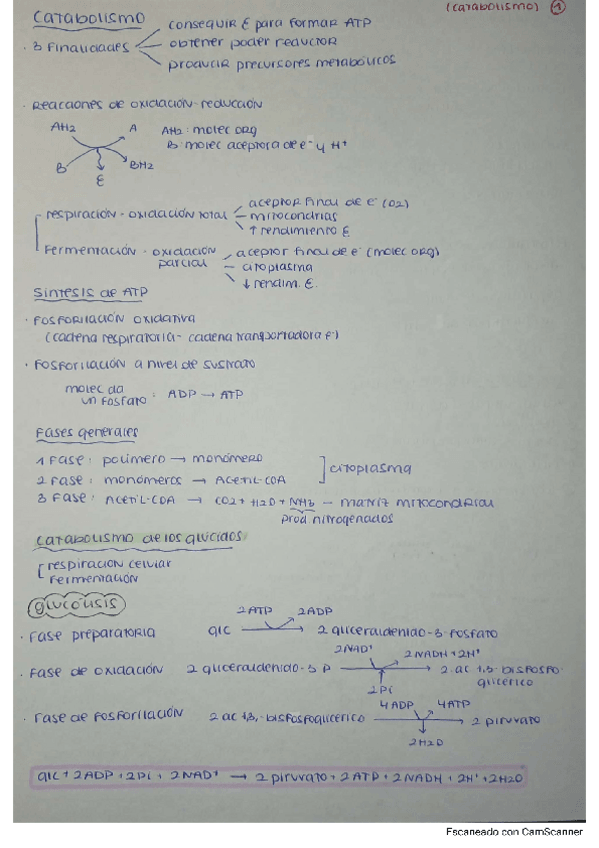 (catabolismo) 1
Catabolismo
· 3 Finalidades
conseguir E para formar ATP
obtener poder reductor
producir precursores metabólicos
· Reacciones de oxidación-reducción
AH2 A
B BH2
E
AH2: molec org
B: molec aceptora de e- y H+
respiración - oxidación total
aceptor final de e- (O2)
mitocondrias
↑ rendimiento E
Fermentación - oxidación parcial
aceptor final de e- (molec org)
citoplasma
↓ rendim. E.
Síntesis de ATP
· Fosforilación oxidativa
(cadena respiratoria - cadena transportadora e-)
· Fosforilación a nivel de sustrato
molec da un fosfato: ADP → ATP
Fases generales
1 Fase: polímero → monómero
2 Fase: monómeros → Acetil-CoA
] citoplasma
3 Fase: Acetil-CoA → CO2 + H2O + NH3 - matriz mitocondrial
prod nitrogenados
Catabolismo de los glúcidos:
respiración celular
Fermentación
glucólisis
2ATP 2ADP
· Fase preparatoria glc → 2 gliceraldehido-3-fosfato
2NAD+ 2NADH + 2H+
· Fase de oxidación 2 gliceraldehido-3P → 2 ac 1,3-bisfosfo-
glicerico
2Pi
4ADP 4ATP
· Fase de Fosforilación 2 ac 1,3,-bisfosfoglicerico → 2 piruvato
2H2O
glc + 2ADP + 2Pi + 2NAD+ → 2 piruvato + 2ATP + 2NADH + 2H+ + 2H2O
Escaneado con CamScanner